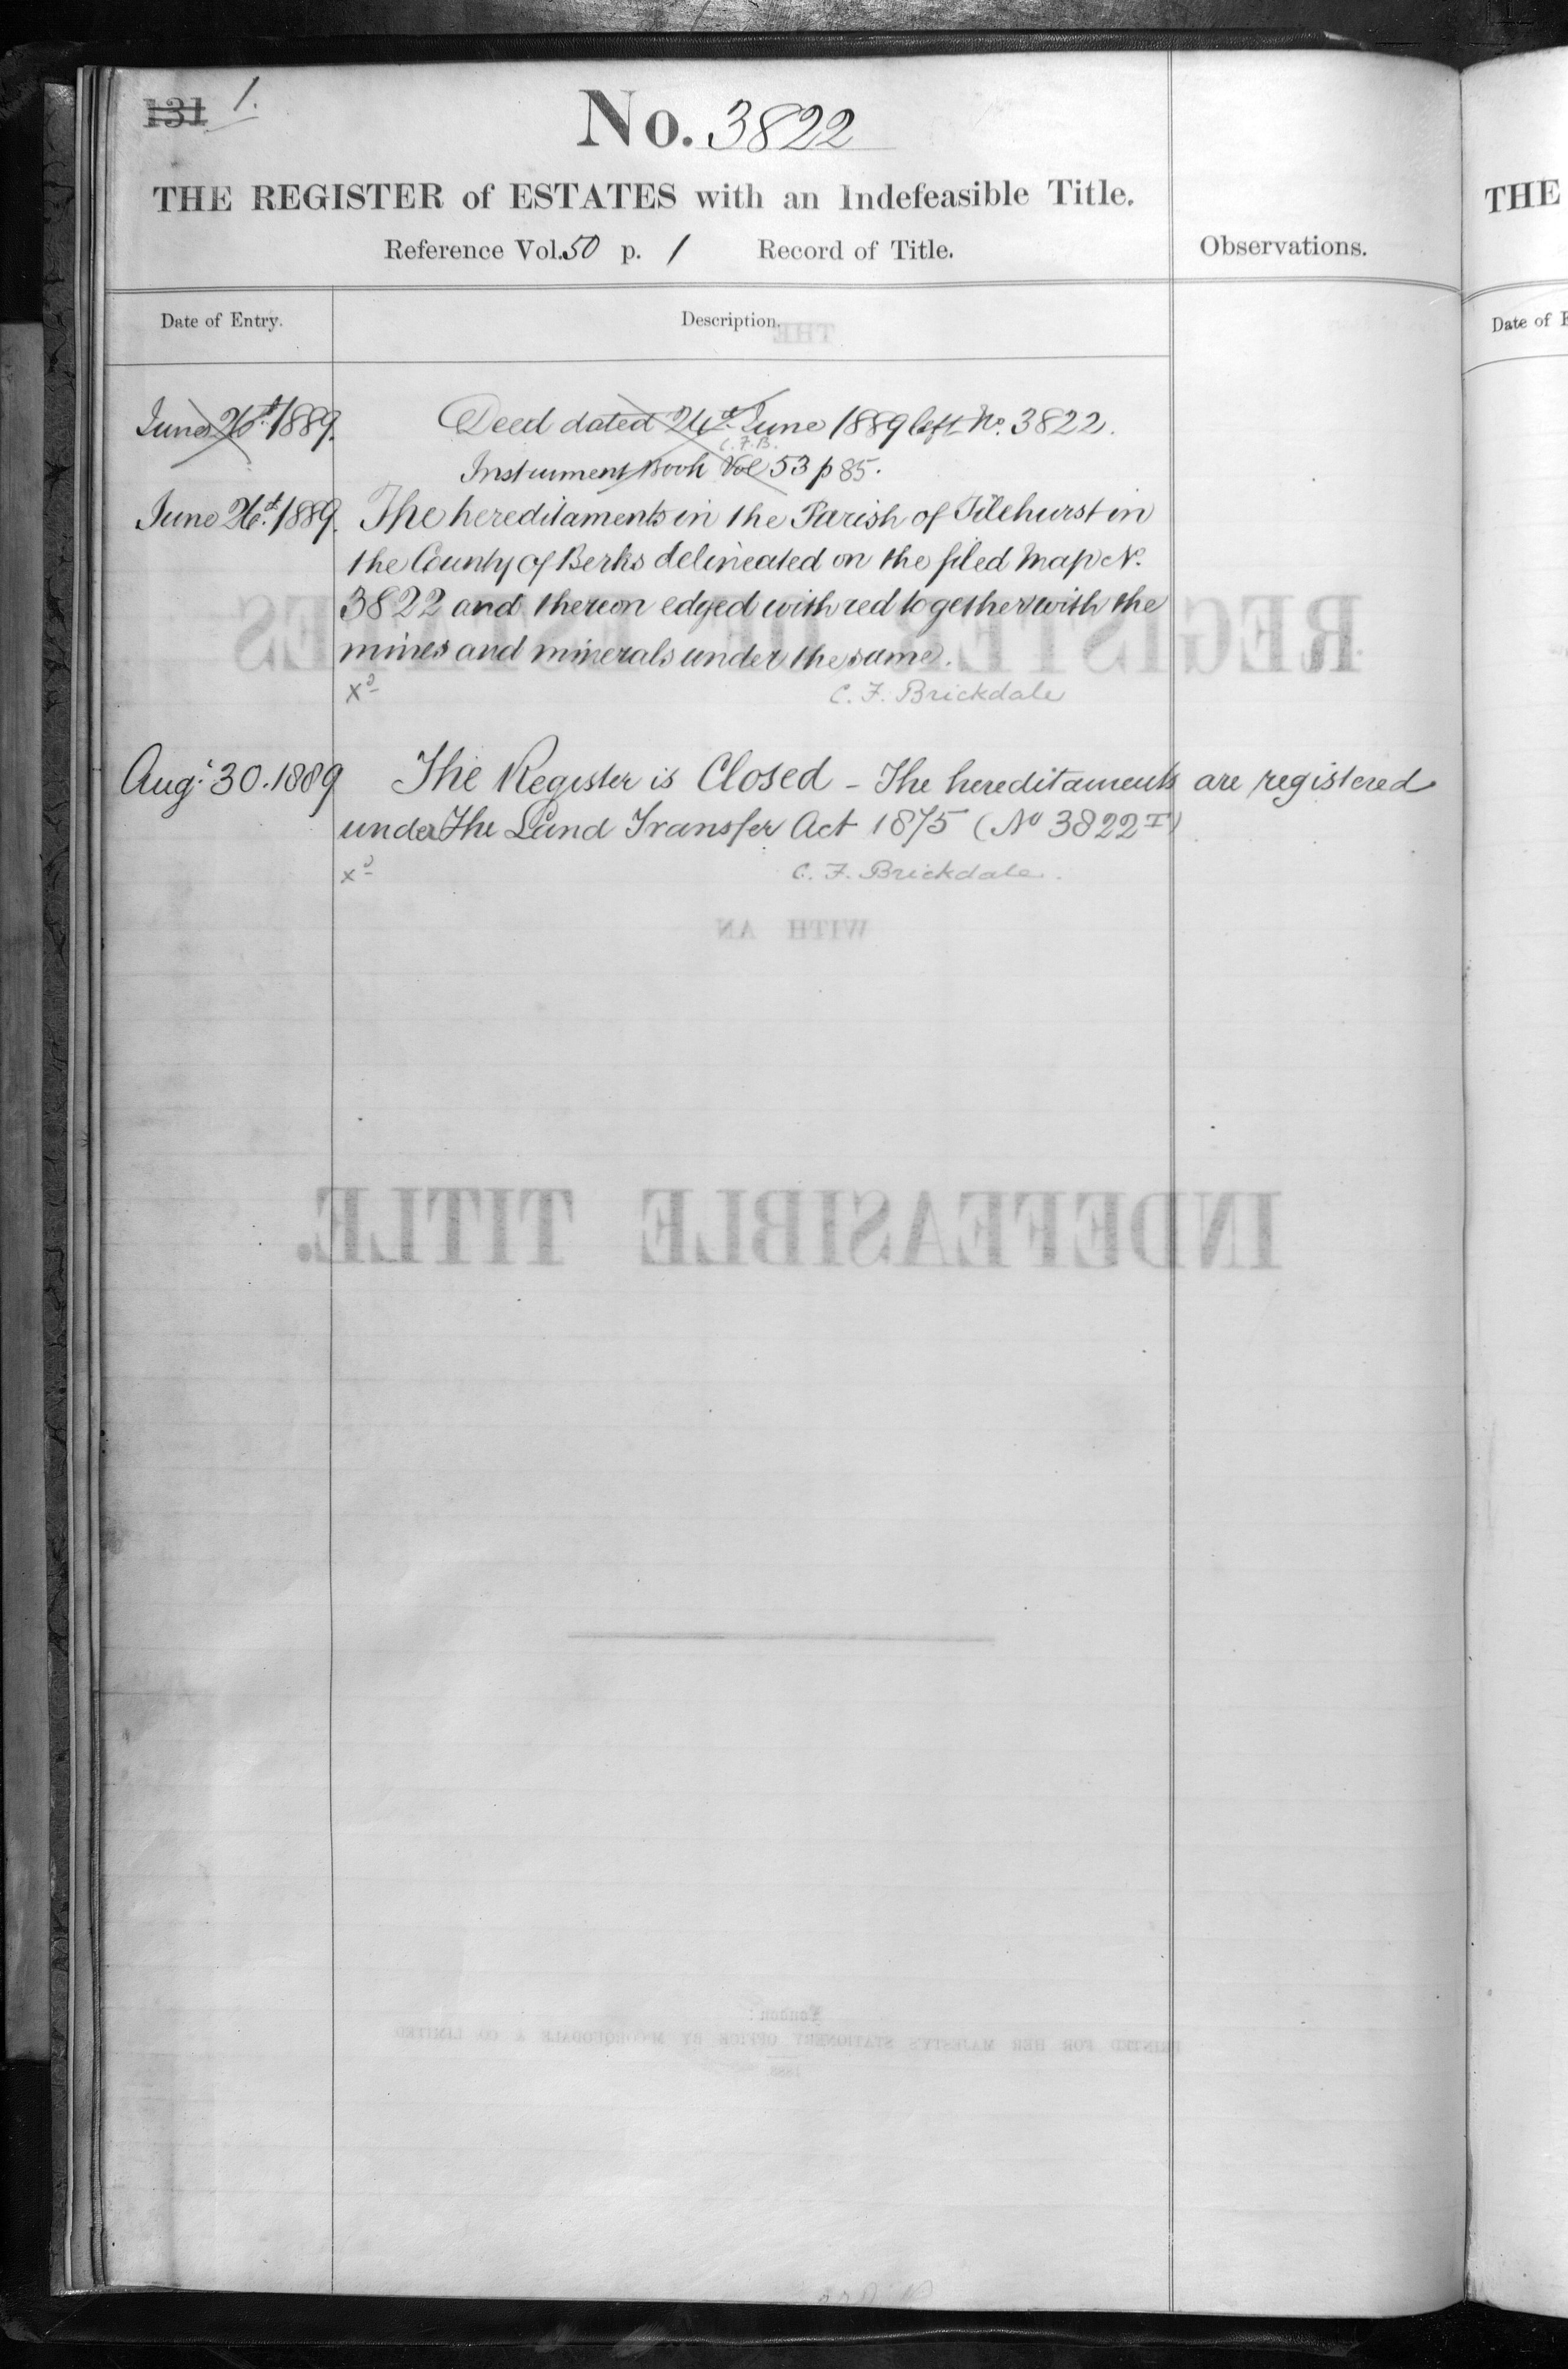 131 1.
No. 3822
THE REGISTER of ESTATES with an Indefeasible Title.
Reference Vol. 50 p. 1 Record of Title.
Observations.
Date of Entry.
Description.
June 26th 1889. Deed dated 24th June 1889 left No. 3822.
C.F.B.
Instrument Book Vol 53 p 85.
June 26th 1889. The hereditaments in the Parish of Tilehurst in
the County of Berks delineated on the filed Map No.
3822 and thereon edged with red together with the
mines and minerals under the same.
xd C. F. Brickdale
Augt 30. 1889 The Register is Closed – The hereditaments are registered
under The Land Transfer Act 1875 (No 3822 I)
xd C. F. Brickdale.
THE
REGISTER OF ESTATES
WITH AN
INDEFEASIBLE TITLE.
London:
PRINTED FOR HER MAJESTY'S STATIONERY OFFICE BY McCORQUODALE & CO LIMITED
1888
THE
Date of E